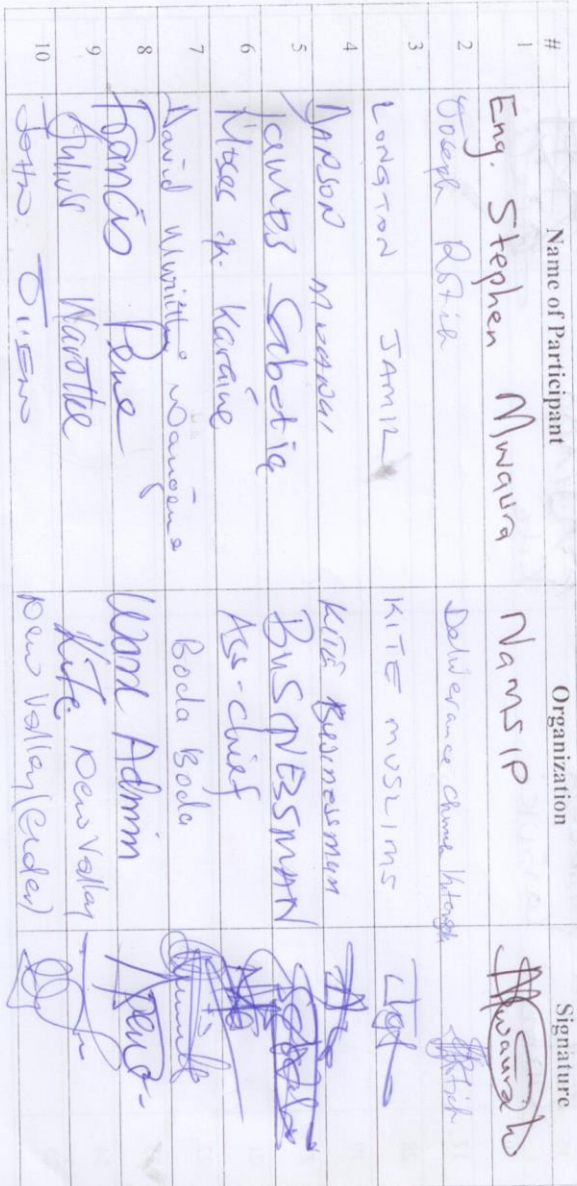 # Name of Participant Organization Signature
1 Eng. Stephen Mwaura NAMSIP Mwaura
2 Joseph Rotich Deliverance Church Rotich
3 LONGTON JAMIL KITE MUSLIMS
4 DANSON MWANGI Kite Businessman
5 James Sabatia BUSINESSMAN
6 Moses K. Karaine Ass-chief
7 David Boda Boda
8 Francis Pene Ward Admin Pene
9 Julius Kite New Valley
10 JOHN New Valley